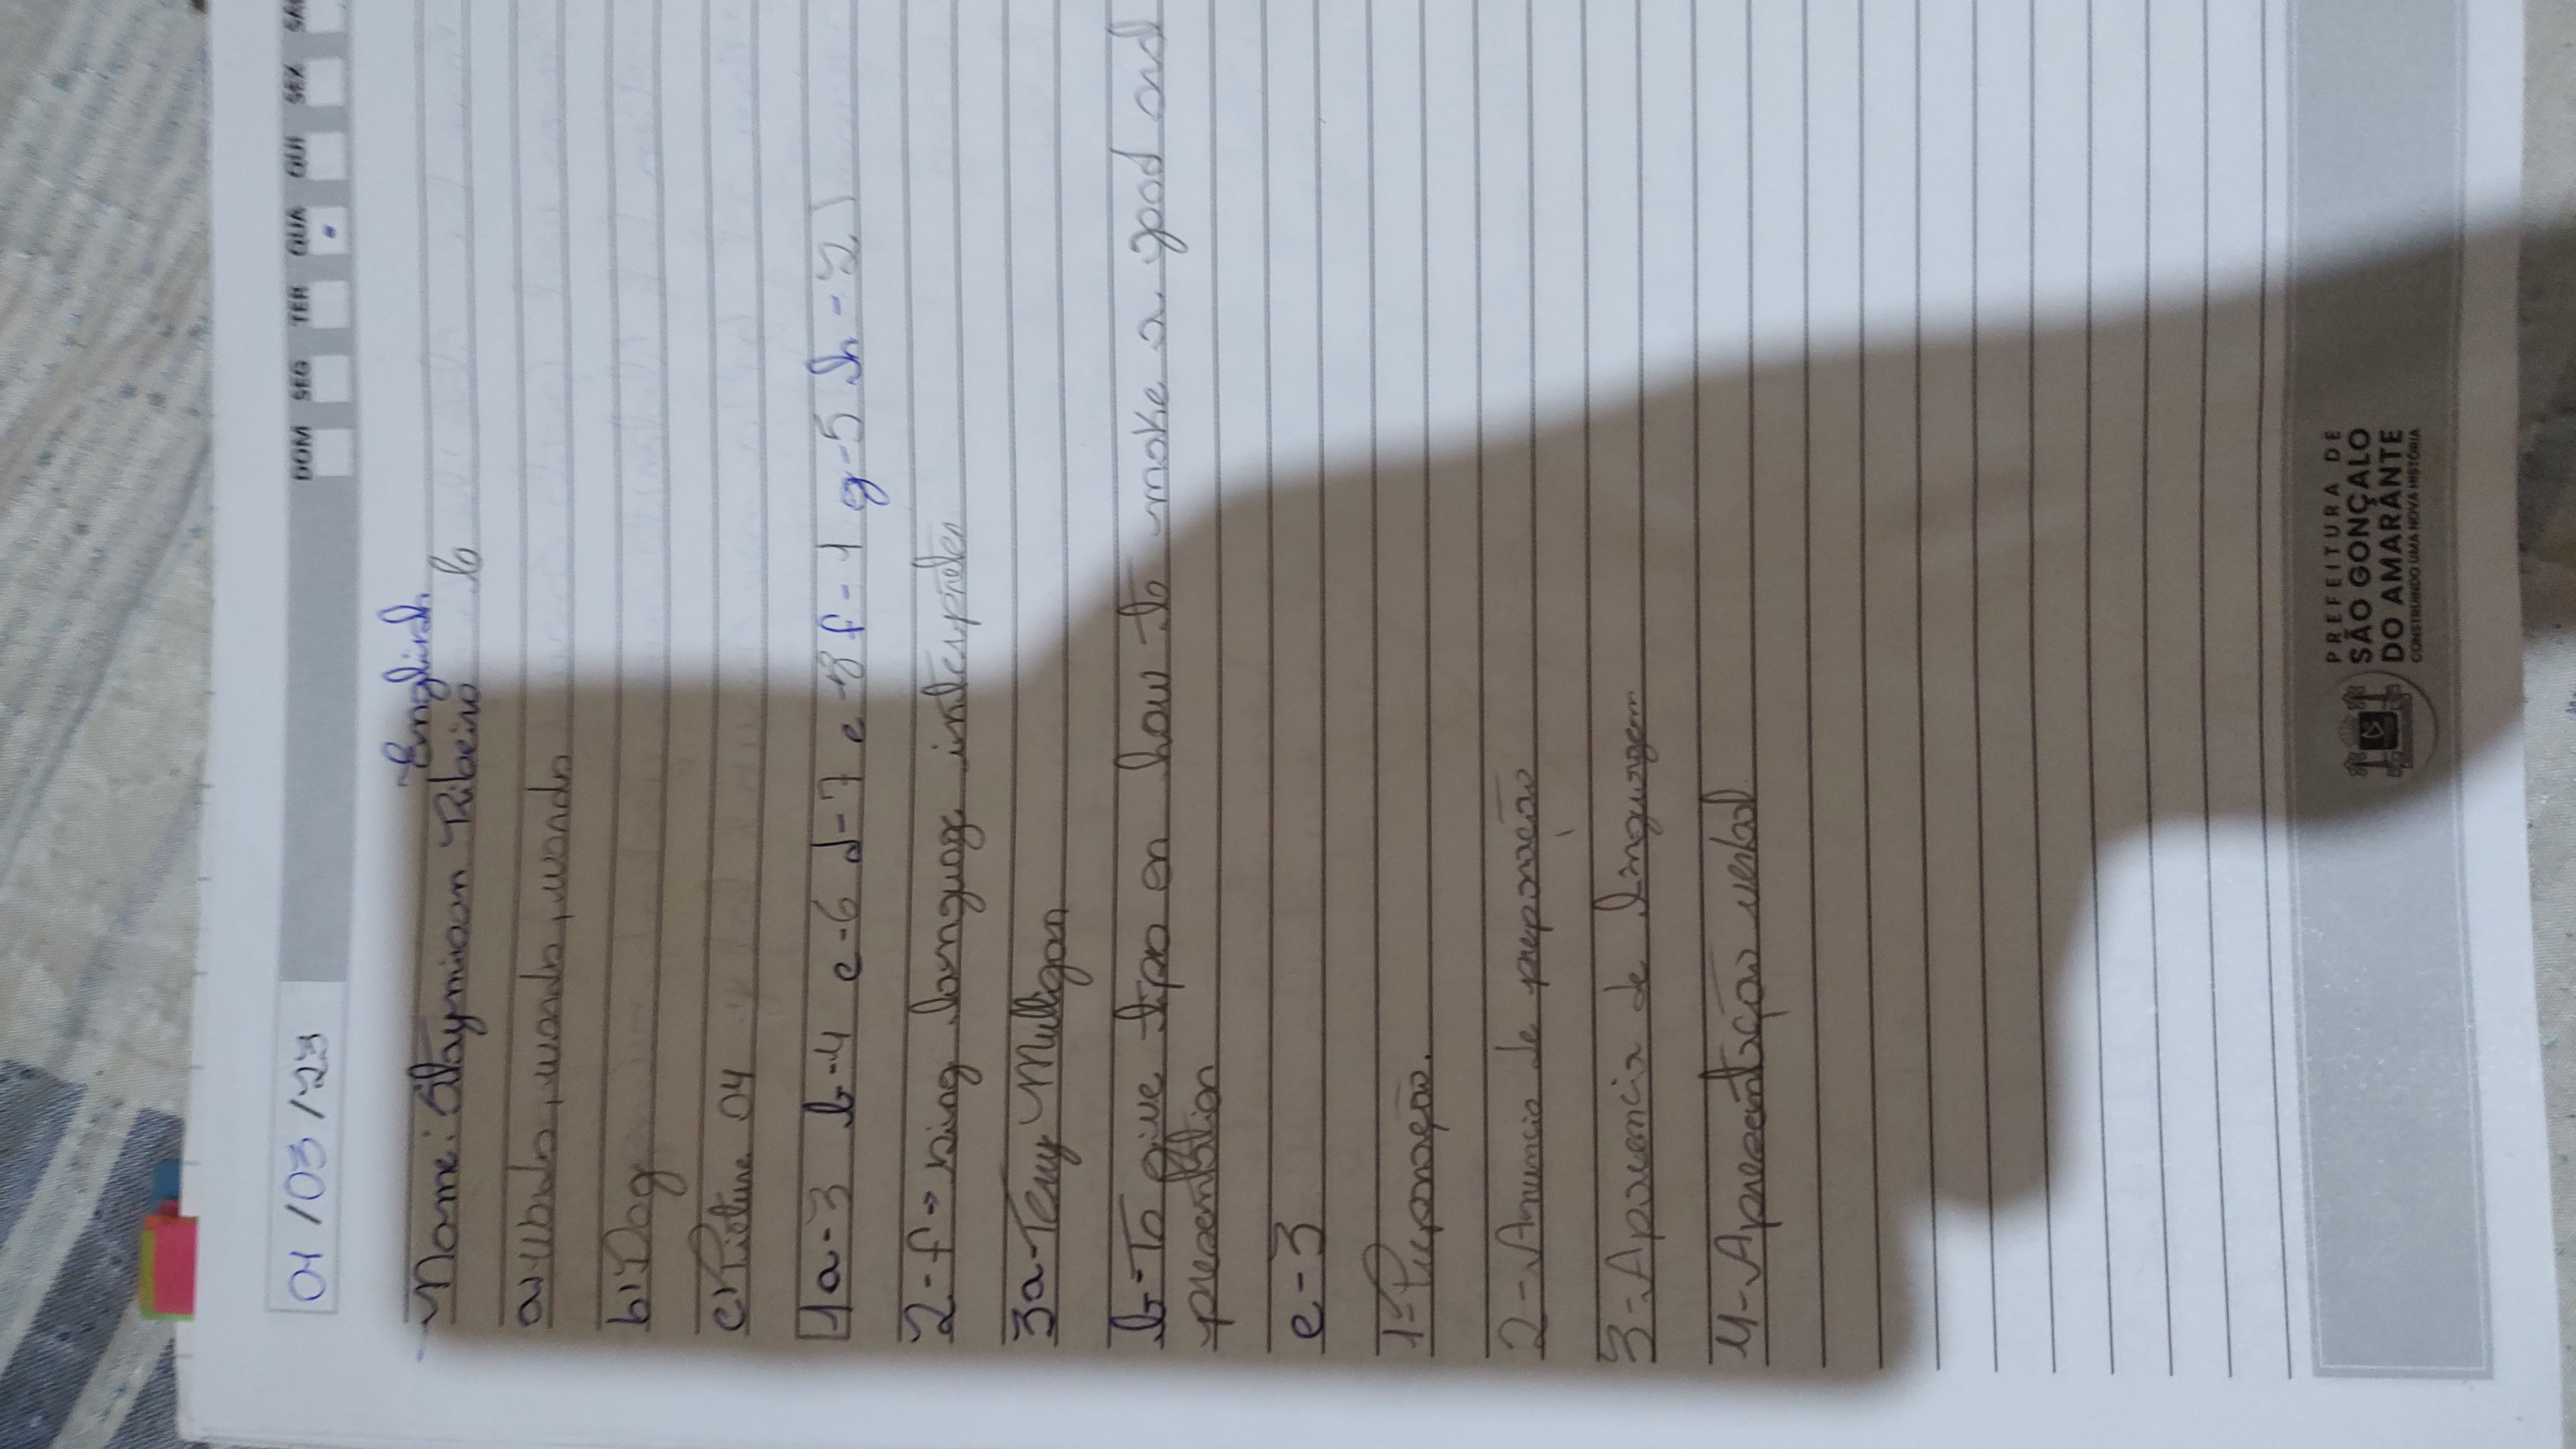 01/03/23
DOM SEG TER QUA QUI SEX
English
Name: Ribeiro
a)
b) Dog
c) Picture 04
1 a-3 b-4 c-6 d-7 e-8 f-1 g-5 h-2
2-f->sing language interpreter
3a-Terry Mulligan
b-To give tips on how to make a good and
presentation
c-3
1- Preparação.
2-Anuncio de preparação
3-Aparencia de linguagem
4-Apresentação verbal
PREFEITURA DE
SÃO GONÇALO
DO AMARANTE
CONSTRUINDO UMA NOVA HISTÓRIA